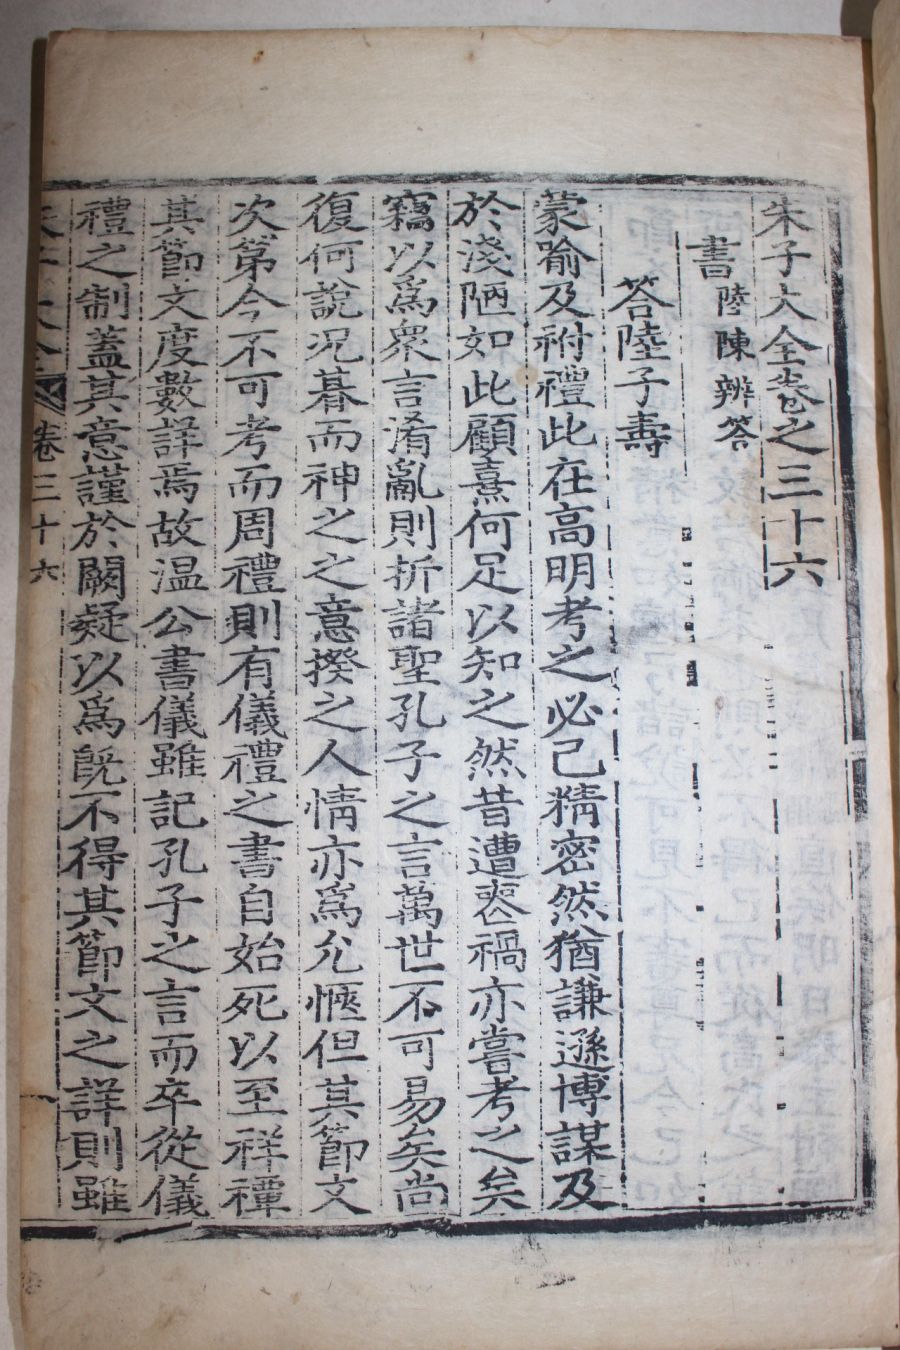 朱子大全卷之三十六
書 陸陳辨答
答陸子壽
蒙喻及祔禮此在高明考之必已精密然猶謙遜博謀及
於淺陋如此顧熹何足以知之然昔遭喪禍亦嘗考之矣
竊以爲衆言淆亂則折諸聖孔子之言萬世不可易矣尚
復何說况朞而神之之意揆之人情亦爲允愜但其節文
次第今不可考而周禮則有儀禮之書自始死以至祥禫
其節文度數詳焉故温公書儀雖記孔子之言而卒從儀
禮之制蓋其意謹於闕疑以爲旣不得其節文之詳則雖
卷三十六